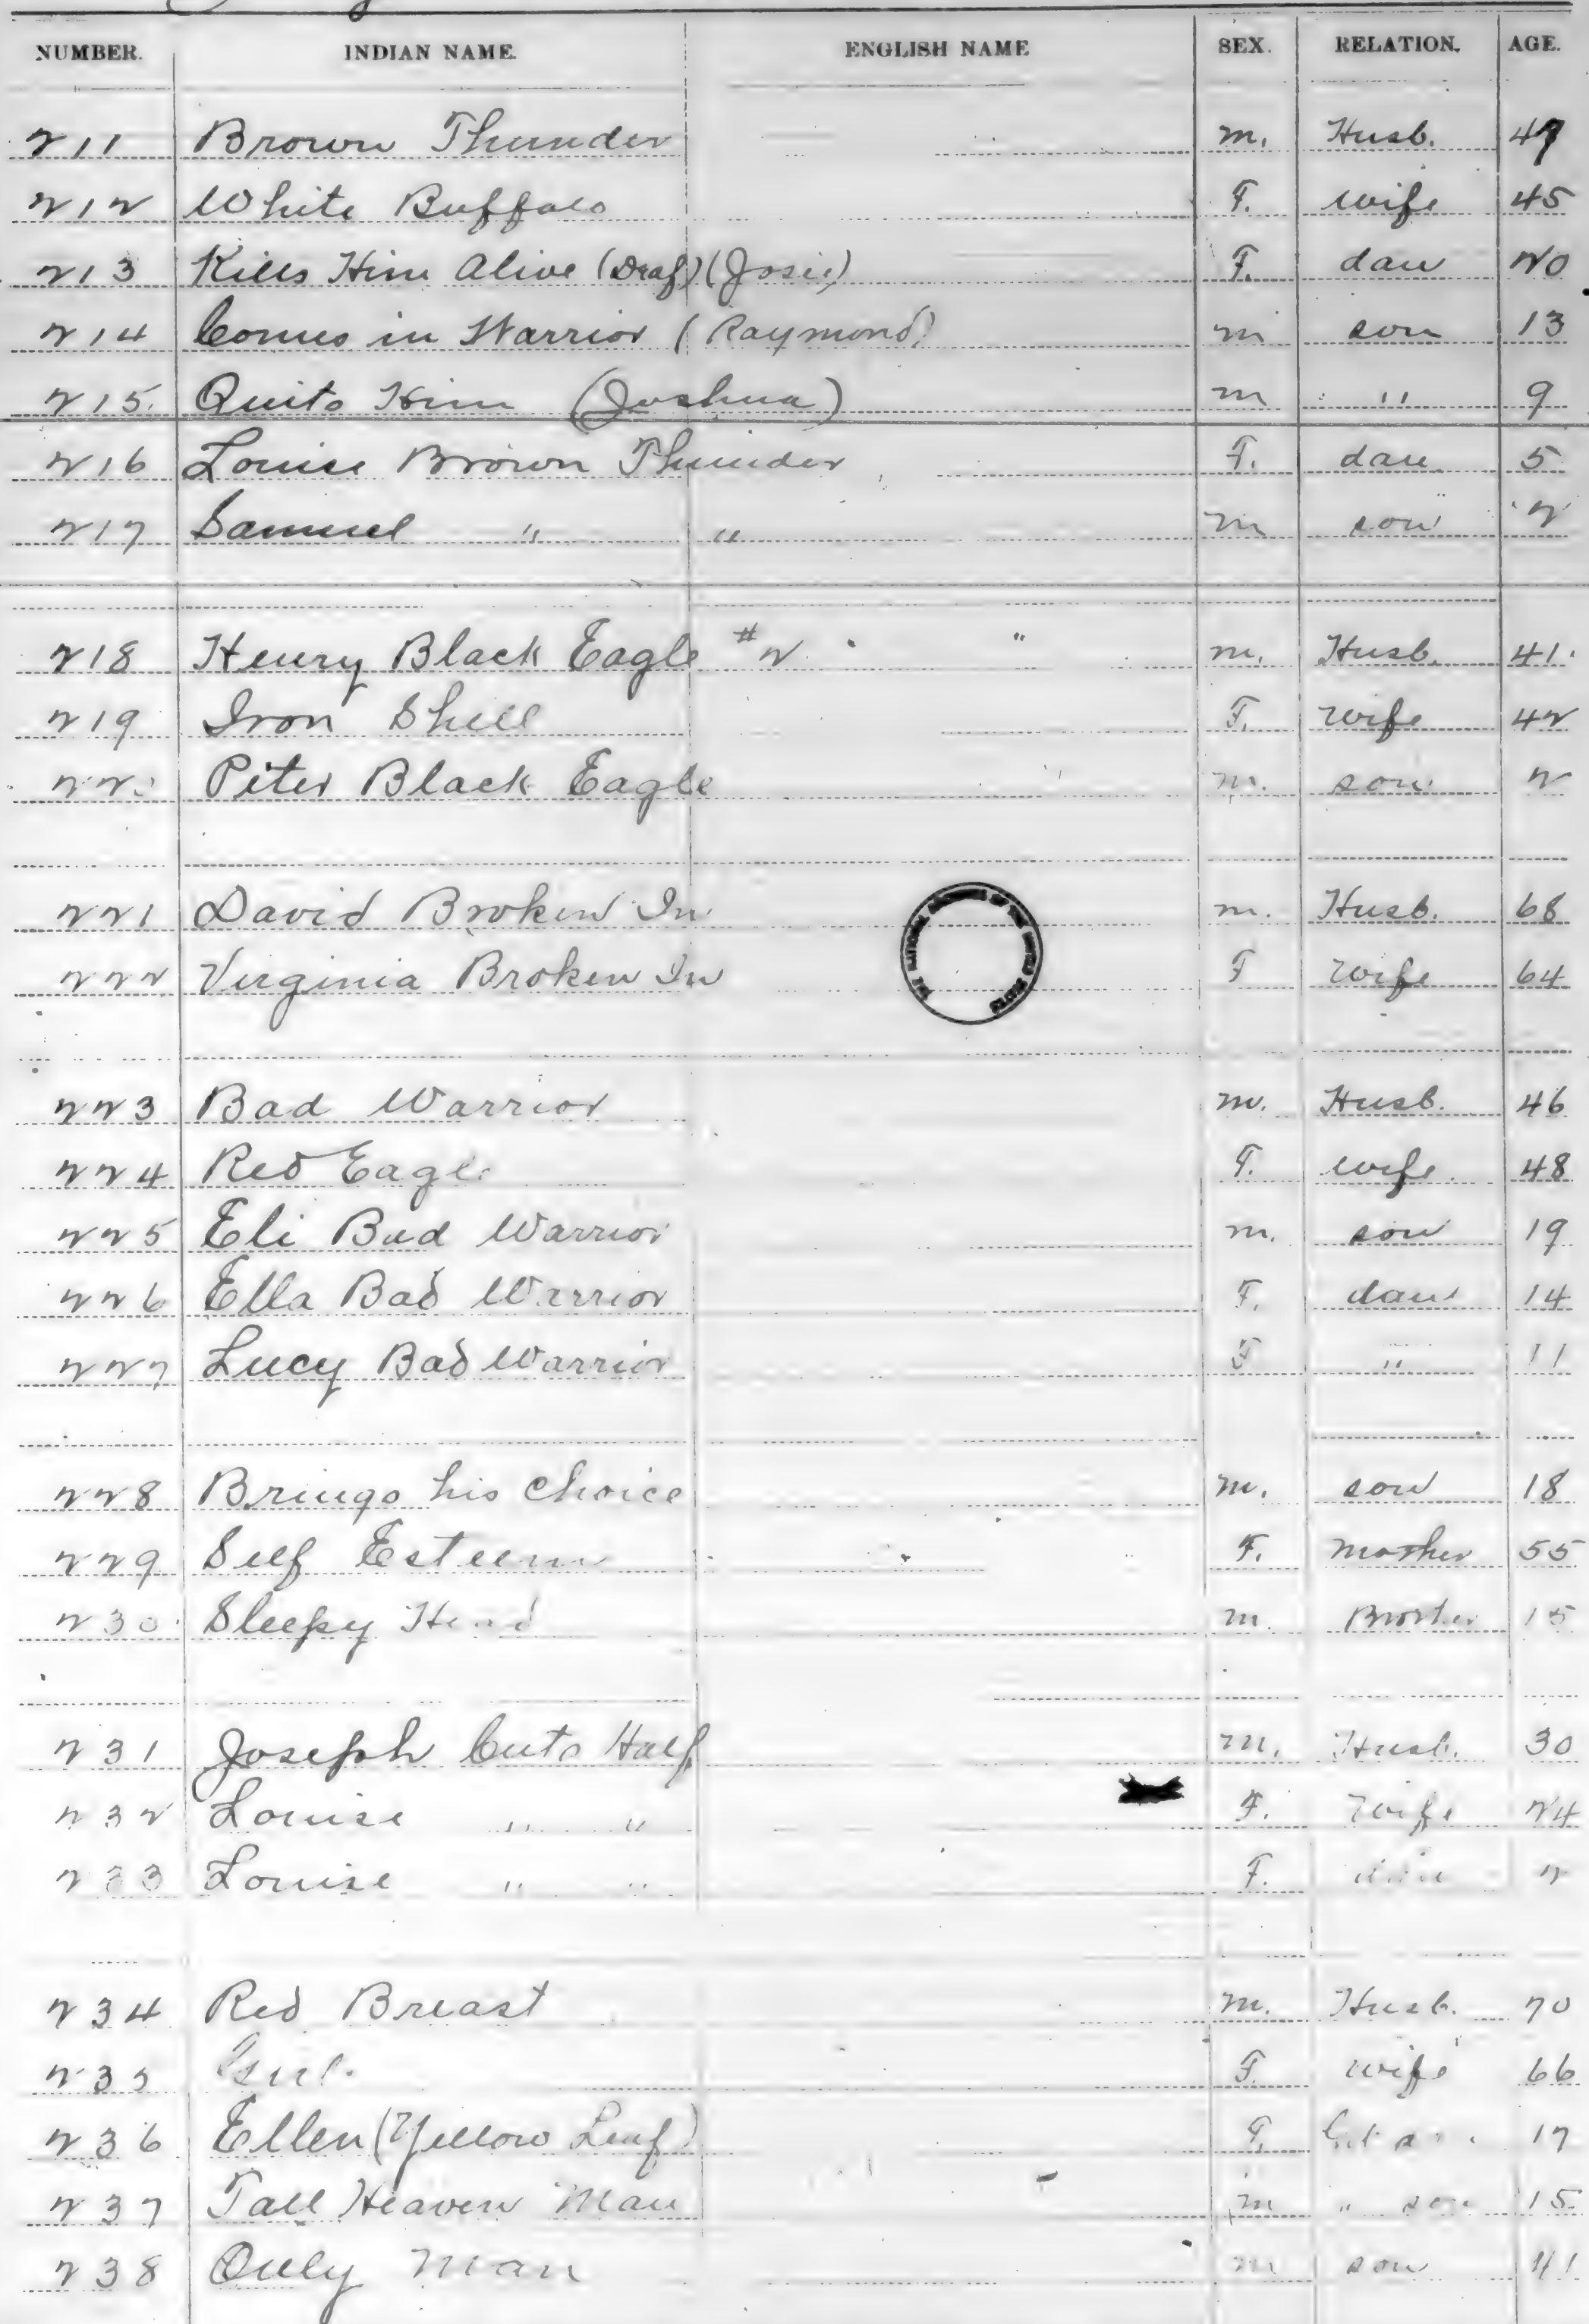 NUMBER. INDIAN NAME. ENGLISH NAME SEX. RELATION. AGE.
211 Brown Thunder m. Husb. 47
212 White Buffalo F. wife 45
213 Kills Him Alive (Deaf) (Josie) F. dau 20
214 Comes in Warrior (Raymond) m son 13
215. Quits Him (Joshua) m " 9
216 Louise Brown Thunder F. dau. 5
217 Samuel " " m son 2
218 Henry Black Eagle #2 " m. Husb. 41
219 Iron Shell F. wife 42
220 Peter Black Eagle m. son 2
221 David Broken In m. Husb. 68
222 Virginia Broken In F wife 64
223 Bad Warrior m. Husb. 46
224 Red Eagle F. wife. 48
225 Eli Bad Warrior m. son 19
226 Ella Bad Warrior F. dau 14
227 Lucy Bad Warrior F " 11
228 Brings his Choice m. son 18
229 Self Esteem F. mother 55
230 Sleepy Head m. Brother 15
231 Joseph Cuts Half m. Husb. 30
232 Louise " " F. wife 24
233 Louise " " F. dau 2
234 Red Breast m. Husb. 70
235 F. wife 66
236 Ellen (Yellow Leaf) F. 17
237 Tall Heaven Man m " son 15
238 Only Man m son 41